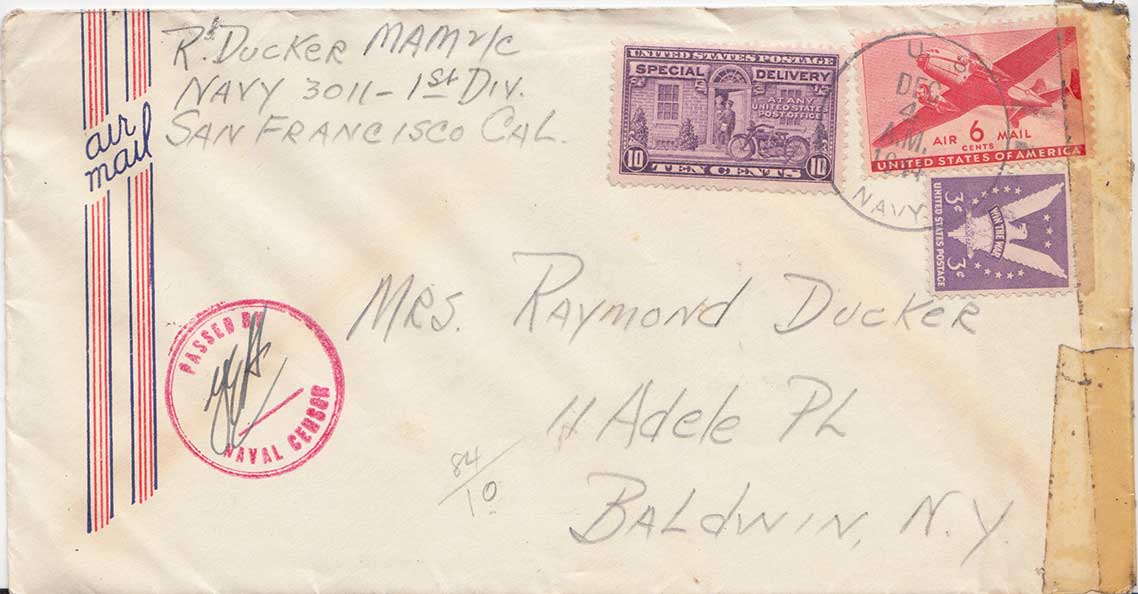 R. DUCKER MAM 2/C
NAVY 3011 - 1st DIV.
SAN FRANCISCO CAL.
air
mail
UNITED STATES POSTAGE
SPECIAL DELIVERY
AT ANY
UNITED STATES
POST OFFICE
10 TEN CENTS 10
U.S.
DEC
4
A.M.
NAVY
AIR 6 MAIL
CENTS
UNITED STATES OF AMERICA
UNITED STATES POSTAGE
3¢ 3¢
WIN THE WAR
PASSED BY
NAVAL CENSOR
MRS. RAYMOND DUCKER
11 Adele PL
BALDWIN, N.Y.
84/10